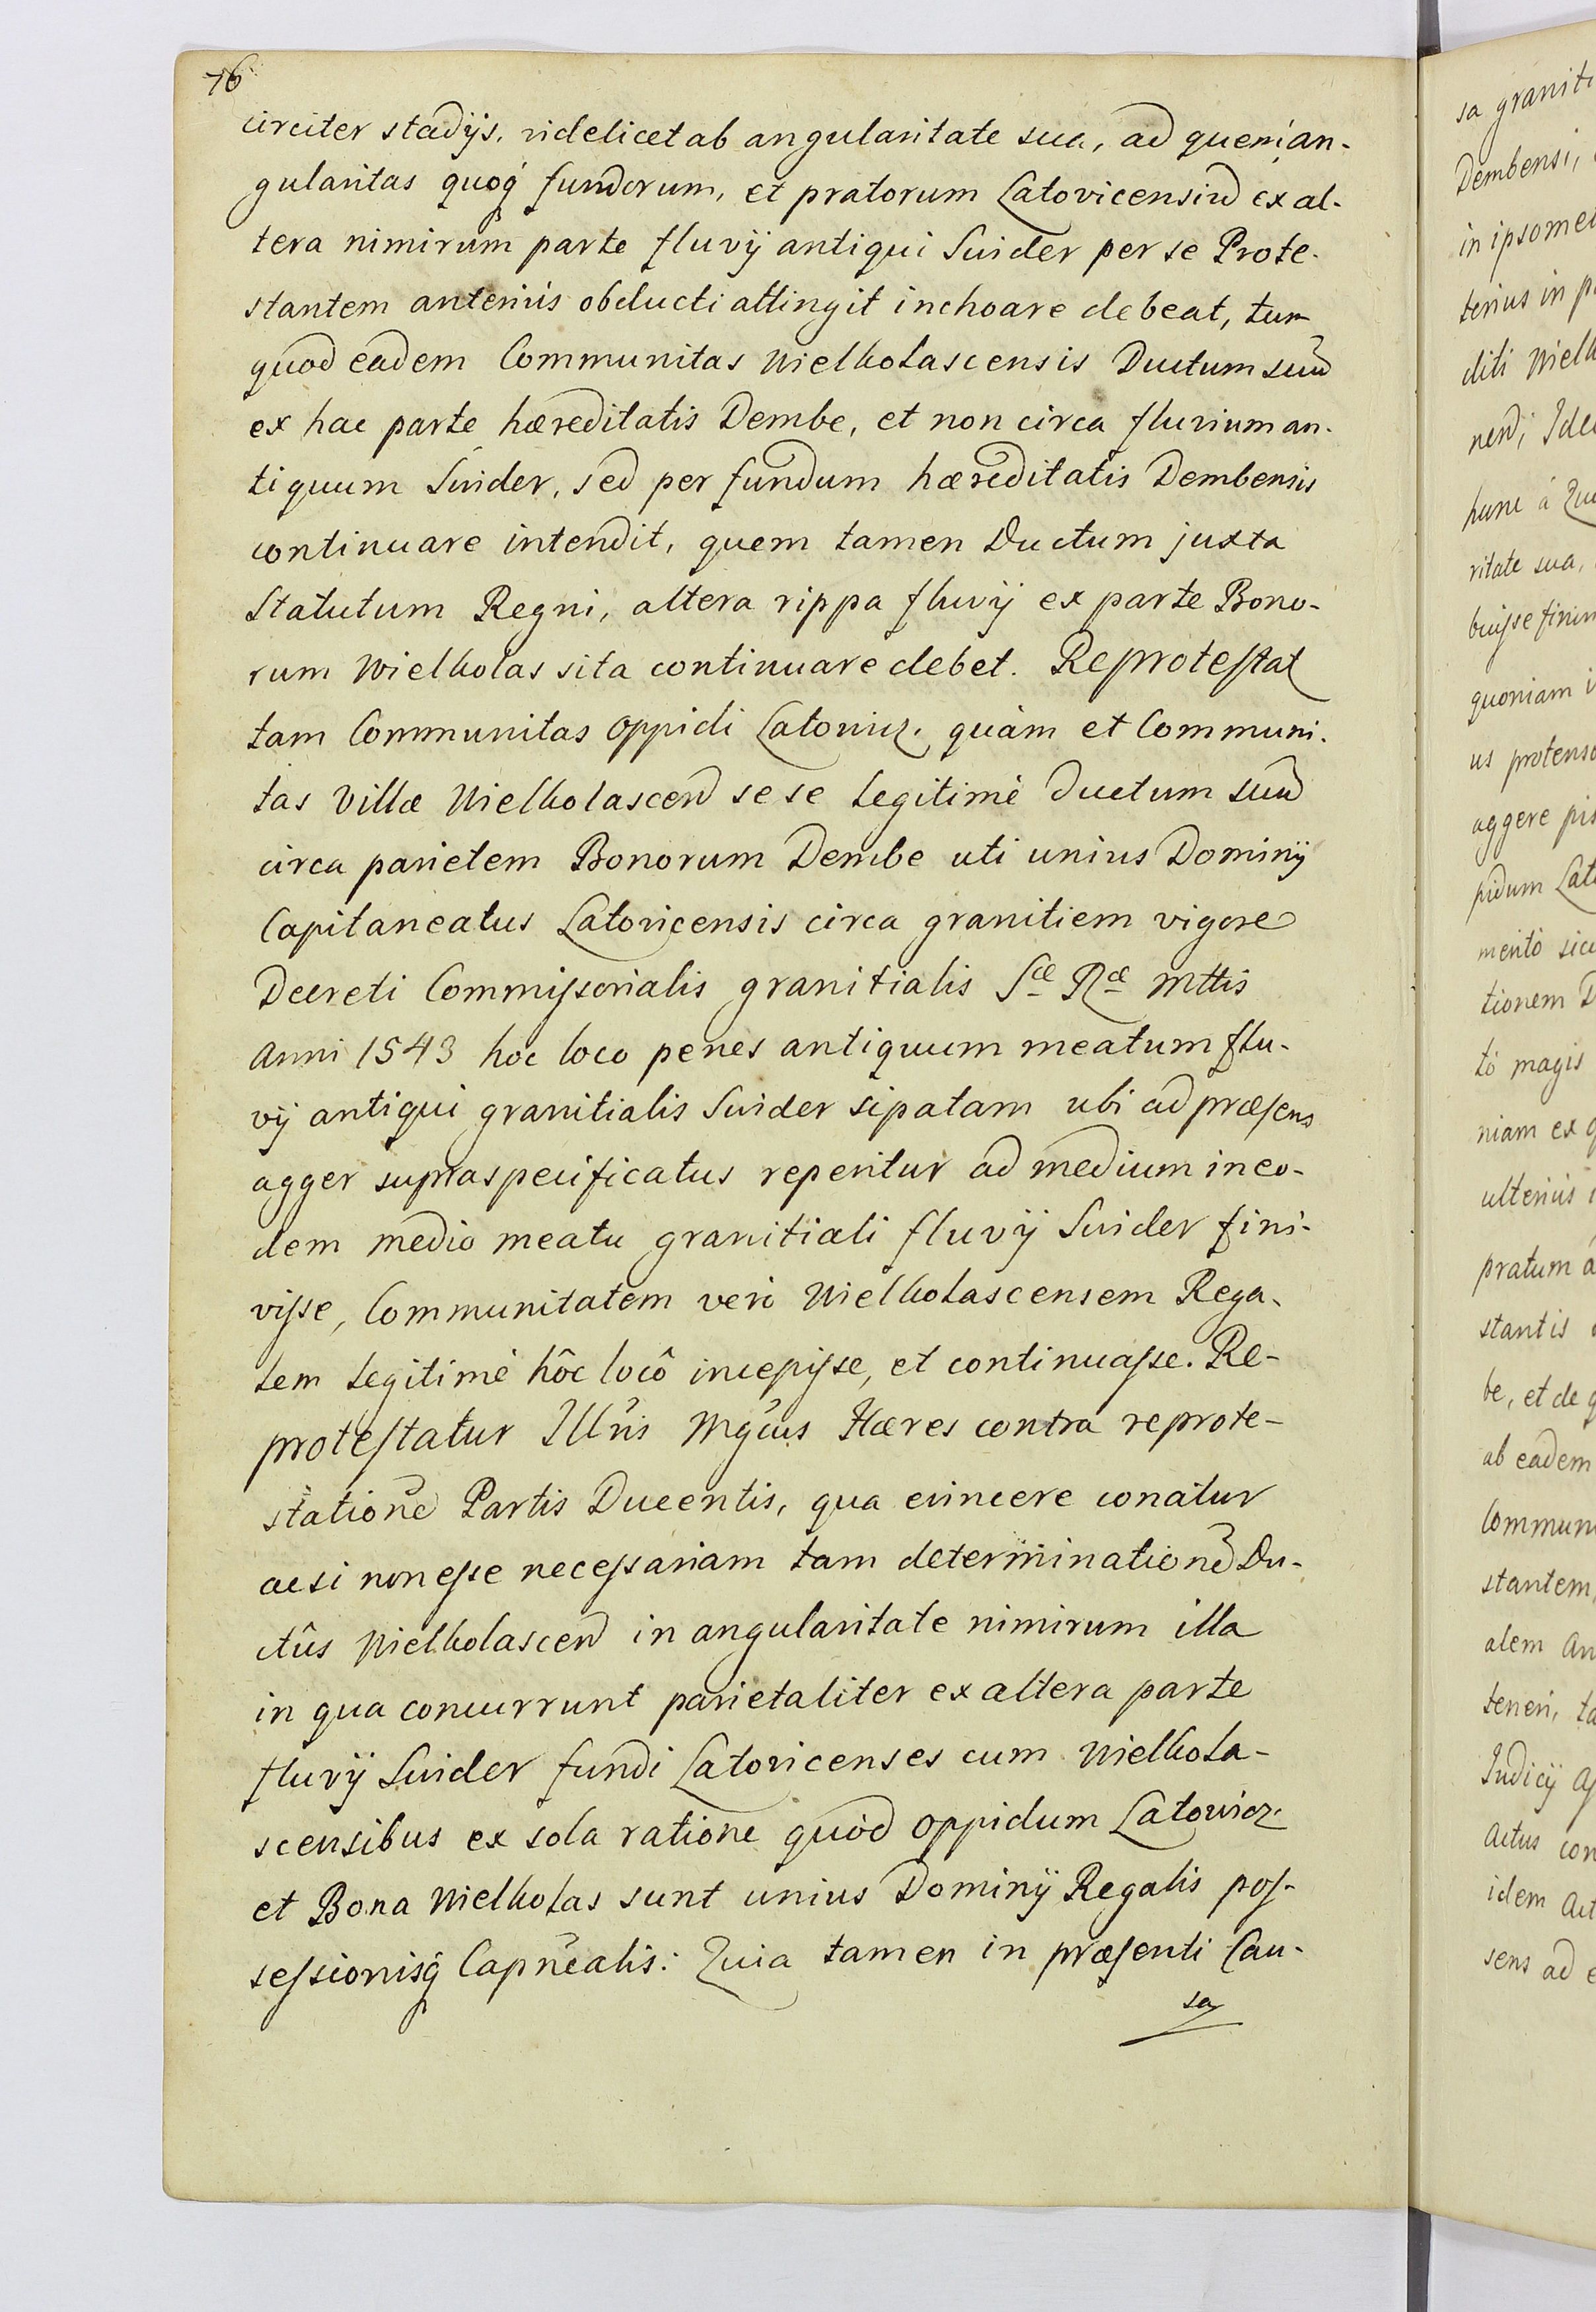 76
circiter stadijs, videlicet ab angularitate sua, ad quem an-
gularitas quoq́ fundorum, et pratorum Latovicensiu̅ ex al-
tera nimirum parte fluvij antiqui Swider per se Prote-
stantem anteriùs obducti attingit inchoare debeat, tum
quod eadem Communitas Wielholascensis Ductum suu̅
ex hac parte hæreditatis Dembe, et non circa fluvium an-
tiquum Swider, sed per fundum hæreditatis Dembensis
continuare intendit, quem tamen Ductum juxta
Statutum Regni, altera rippa fluvij ex parte Bono-
rum Wielholas sita continuare debet. Reprotestat
tam Communitas Oppidi Latowicz. quàm et Communi-
tas Villæ Wielholascen̅ se se legitimè ductum suu̅
circa parietem Bonorum Dembe uti unius Dominij
Capitaneatus Latovicensis circa granitiem vigore
Decreti Commissorialis granitialis Sæ Ræ Mttis
Anni 1543 hoc loco penes antiquum meatum flu-
vij antiqui granitialis Swider sipatam ubi ad præsens
agger supraspecificatus reperitur ad medium in eo-
dem medio meatu granitiali fluvij Swider fini-
visse, Communitatem verò Wielholascensem Rega-
lem legitimè hôc locô incepisse, et continuasse. Re-
protestatur Illrĩs Mgc̃us Hæres contra reprote-
statione̅ Partis Ducentis, qua evincere conatur
acsi non esse necessariam tam determinatione̅ Du-
ctûs Wielholascen̅ in angularitate nimirum illa
in qua concurrunt parietaliter ex altera parte
fluvij Swider fundi Latovicenses cum Wielhola-
scensibus ex sola ratione quòd oppidum Latowicz.
et Bona Wielholas sunt unius Dominij Regalis pos-
sessionisq́ Capnẽalis: Quia tamen in præsenti Cau-
sa
sa graniti
Dembensi,
in ipsomet
terius in p
diti Wielh
nen̅, Ide
hunc à Qu
ritate sua,
buisse finir
quoniam i
us protens
aggere pis
pidum Lat
meritò sicu
tionem D
tò magis
niam ex q
ulteriùs i
pratum a
stantis
be, et de q
ab eadem
Commun
stantem,
alem An
teneri, ta
Iudicij A
Actus con
idem Act
sens ad e